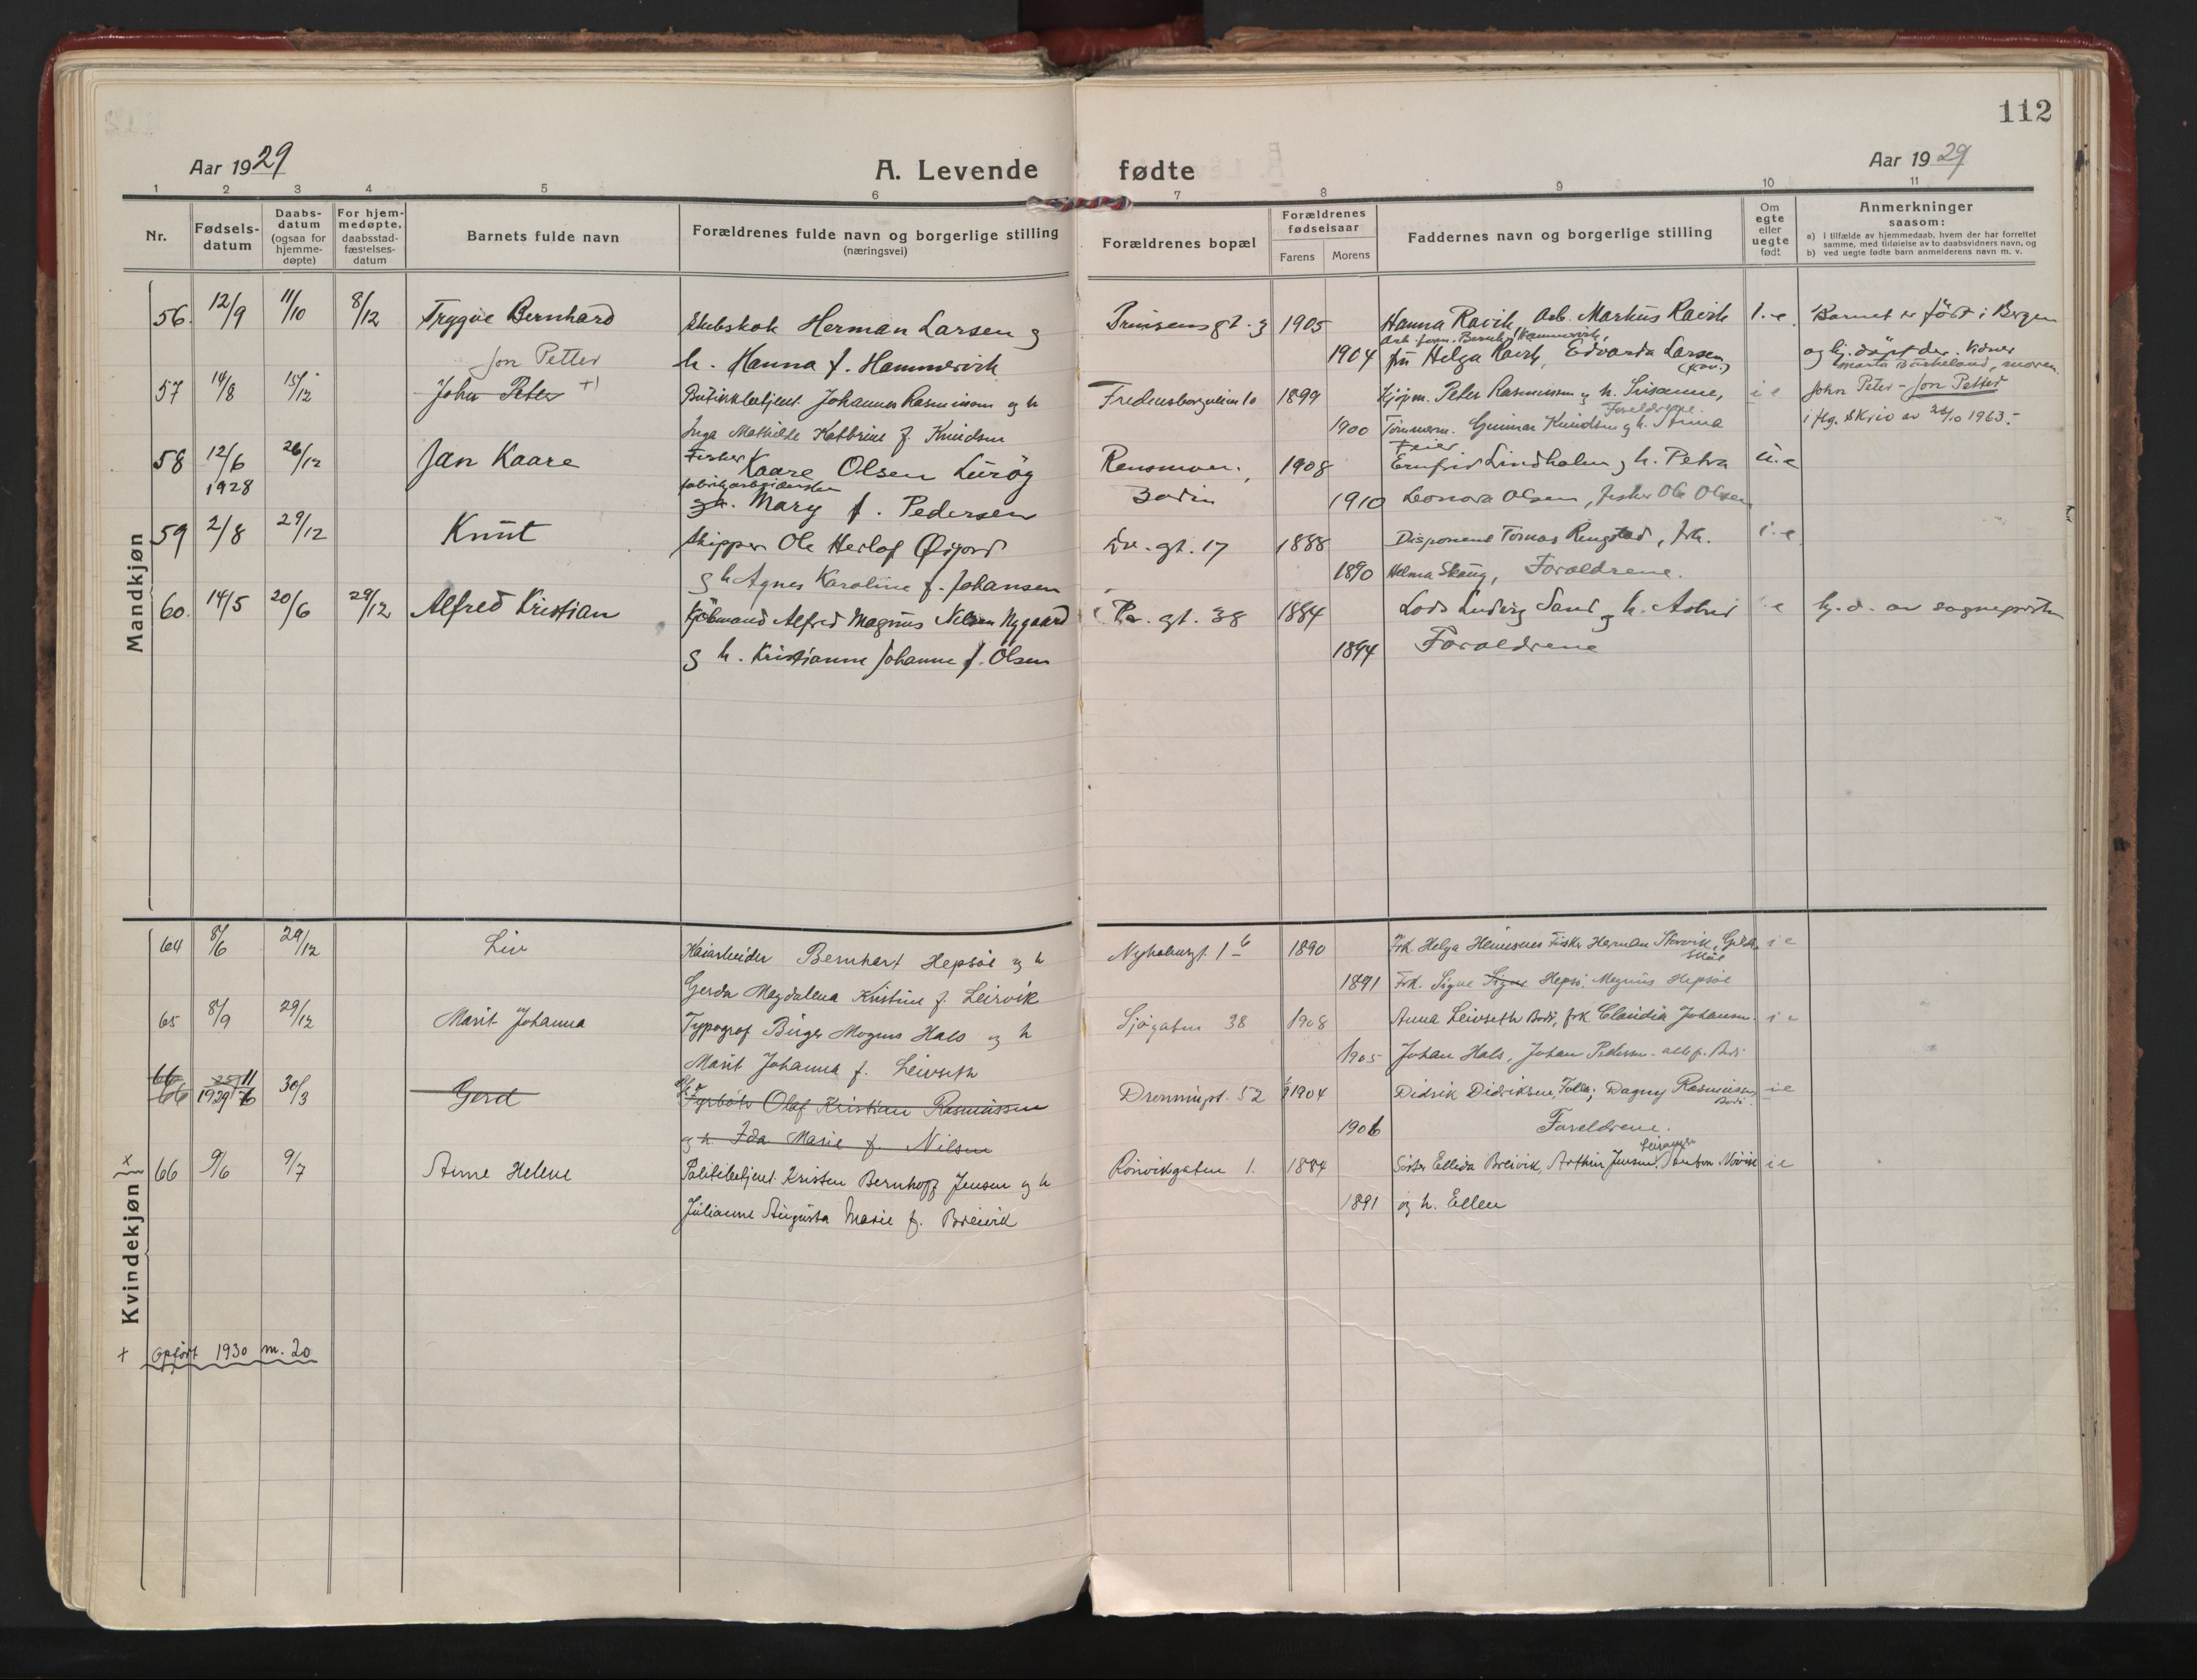 112
Aar 1929
A. Levende fødte
Aar 1929
1 2 3 4 5 6 7 8 9 10 11
Nr.
Fødsels-
datum
Daabs-
datum
(ogsaa for
hjemme-
døpte)
For hjem-
medøpte,
daabsstad-
fæstelses-
datum
Barnets fulde navn
Forældrenes fulde navn og borgerlige stilling
(næringsvei)
Forældrenes bopæl
Forældrenes
fødselsaar
Farens Morens
Faddernes navn og borgerlige stilling
Om
egte
eller
uegte
født
Anmerkninger
saasom:
a) i tilfælde av hjemmedaab, hvem der har forrettet
samme, med tilføielse av to daabsvidners navn, og
b) ved uegte fødte barn anmelderens navn m. v.
Mandkjøn
56. 12/9 11/10 8/12 Trygve Bernhard Skibskok Herman Larsen og Prinsensgt. 3 1905 Hanna Ravik, Arb. Markus Ravik i.e. Barnet er født i Bergen
h. Hanna f. Hammervik 1904 fru Helga Ravik, Edvarda Larsen og hj.døpt der. Vidner
Marta Birkeland, moren.
Jon Petter
57 14/8 15/12 John Peter +) Butikkbetjent Johannes Rasmussen og h Fredensborgveien 10 1899 Kjøpm. Peter Rasmussen og h. Susanne, i e John Peter - Jon Petter
Foreldrene.
Inga Mathilde Kathrine f. Knudsen 1900 Tømmerm. Gunnar Knudsen og h. Anna i flg. skriv av 26/10 1963.-
58 12/6 26/12 Jan Kaare Fisker Kaare Olsen Lurøy Rensmoen, 1908 Feier Ernfrid Lindholm og h. Petra u.e
1928 fabrikarbeiderske Mary f. Pedersen Bodin 1910 Leonora Olsen, fisker Ole Olsen
59 2/8 29/12 Knut Skipper Ole Herlof Øijord Dr. gt. 17 1888 Disponent Tomas Rengstad, frk. i.e.
og h Agnes Karoline f. Johansen 1890 Helma Skaug, Foraeldrene.
60. 14/5 20/6 29/12 Alfred Kristian Kjøbmand Alfred Magnus Nilsen Nygaard gt. 38 1884 Lods Ludvig Sand og h. Astrid i e hj.d. av sognepresten
og h. Kristianne Johanne f. Olsen 1894 Foraeldrene
Kvindekjøn
64 8/6 29/12 Liv Kaiarbeider Bernhart Hepsøe og h Nyholmsgt. 1 b 1890 Frk. Helga Fisker Herman Storvik, i e
Gerda Magdalena Kristine f. Leirvik 1891 Frk. Signe Signe Hepsø, Magnus Hepsøe
65 8/9 29/12 Marit Johanna Typograf Birger Mogens Hals og h Sjøgaten 38 1908 Anna Leivseth Bodø, frk. Claudia Johansen i e
Marit Johanna f. Leivseth 1905 Johan Hals, Johan Pedersen. alle f. Bodø
66 11/6 1929 30/3 Gerd Fyrbøter Olaf Kristian Rasmussen Dronningt. 52 1904 Didrik Didriksen, Folda, Dagny Rasmussen, Bodø i e
og h. Ida Marie f. Nilsen 1906 Foreldrene.
x 66 9/6 9/7 Anne Helene Politibetjent Kristen Bernhoff Jensen og h Rønvikgaten 1. 1884 Søster Ellida Breivik, Arthur Jensen, i e
Julianne Augusta Marie f. Breivik 1891 og h. Ellen
+ Opført 1930 nr. 20